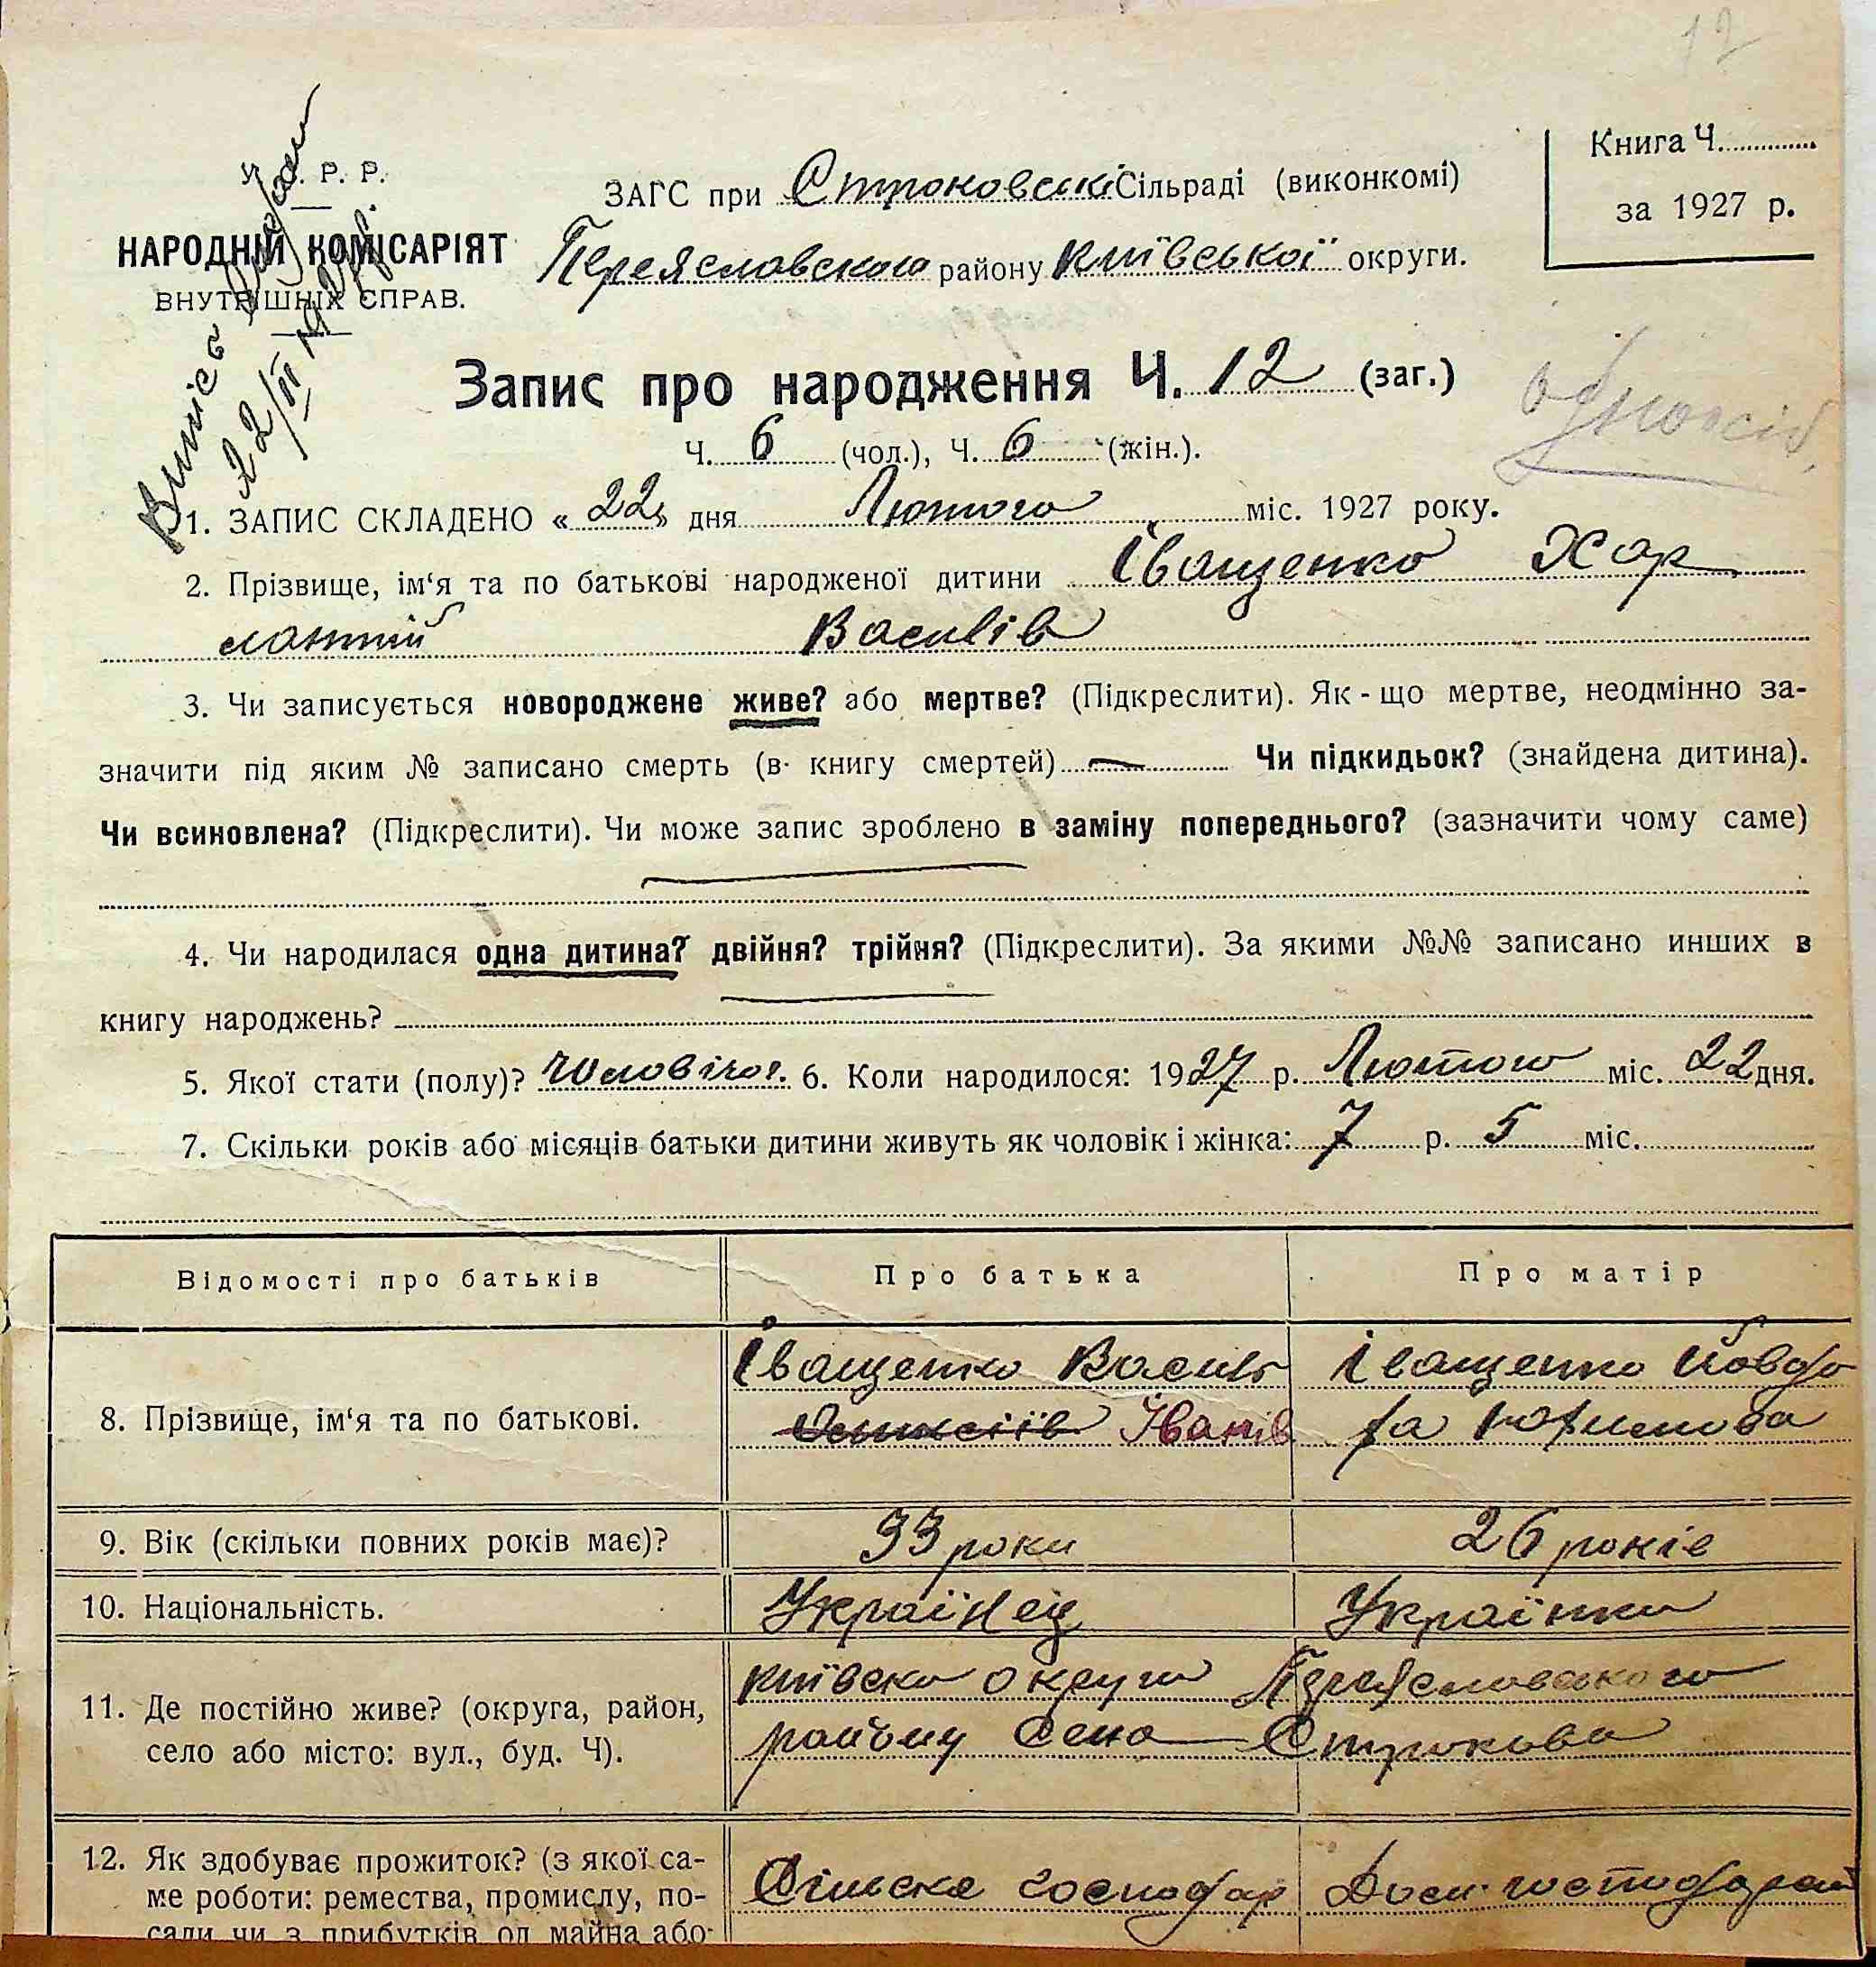 12
У. Р. Р.
НАРОДНІЙ КОМІСАРІЯТ
ВНУТРІШНІХ СПРАВ.
Випис
22/II 1927 р.
ЗАГС при Строковські Сільраді (виконкомі)
Переяславского району Київської округи.
Книга Ч.
за 1927 р.
Запис про народження Ч. 12 (заг.)
Ч. 6 (чол.), Ч. 6 (жін.).
1. ЗАПИС СКЛАДЕНО «22» дня Лютого міс. 1927 року.
2. Прізвище, ім‘я та по батькові народженої дитини Іващенко Хар
лантій Василів
3. Чи записується новороджене живе? або мертве? (Підкреслити). Як-що мертве, неодмінно за-
значити під яким № записано смерть (в книгу смертей) — Чи підкидьок? (знайдена дитина).
Чи всиновлена? (Підкреслити). Чи може запис зроблено в заміну попереднього? (зазначити чому саме)
4. Чи народилася одна дитина? двійня? трійня? (Підкреслити). За якими №№ записано инших в
книгу народжень?
5. Якої стати (полу)? Чоловічої. 6. Коли народилося: 1927 р. Лютого міс. 22 дня.
7. Скільки років або місяців батьки дитини живуть як чоловік і жінка: 7 р. 5 міс.
Відомості про батьків Про батька Про матір
8. Прізвище, ім‘я та по батькові.
Іващенко Василь
Іванів
Іващенко Йовдо
ха Юхимова
9. Вік (скільки повних років має)? 33 роки 26 років
10. Національність. Українец Українка
11. Де постійно живе? (округа, район,
село або місто: вул., буд. Ч).
Київска округа Переяславського
району Села Строкова
12. Як здобуває прожиток? (з якої са-
ме роботи: ремества, промислу, по-
сади чи з прибутків од майна або
Сільске господар
Дом. господарст